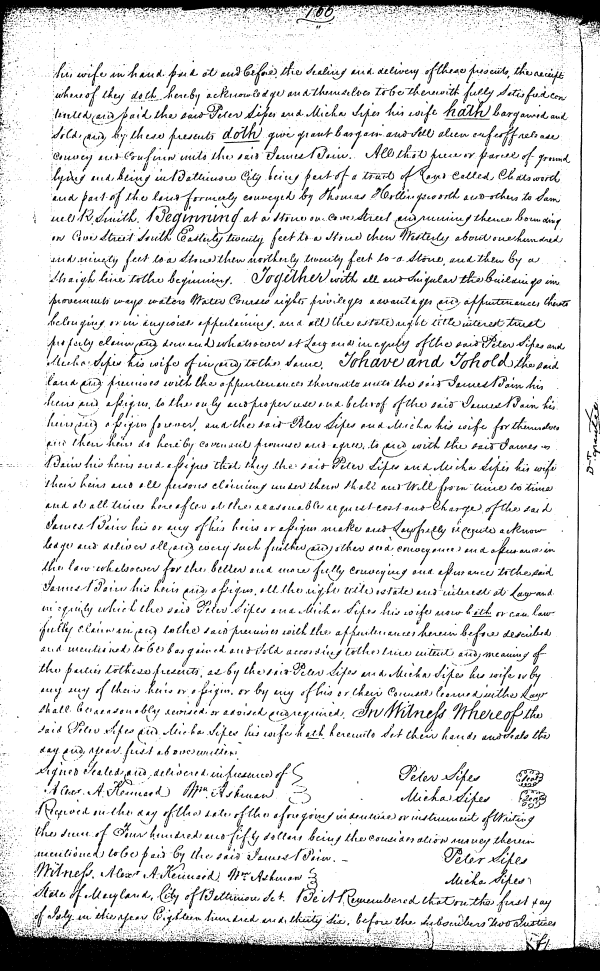 166
his wife in hand paid at and before, the sealing and delivery of these presents, the receipt
whereof they doth hereby acknowledge and themselves to be therewith fully satisfied con
tented and paid the said Peter Sipes and Micha Sipes his wife hath bargained and
Sold and by these presents doth give grant bargain and Sell alien enfeoff release
convey and Confirm unto the said James N Bain. All that piece or parcel of ground
lying and being in Baltimore City being part of a tract of Land called Chatsworth
and part of the land formerly conveyed by Thomas Hollingsworth and others to Sam
uel R. Smith. Beginning at a Stone on Cove Street and running thence bounding
on Cove Street South Easterly twenty feet to a Stone then Westerly about one hundred
and ninety feet to a Stone then northerly twenty feet to a Stone, and then by a
straigh line to the beginning. Together with all and singular the buildings im
provements ways waters Water Courses rights privileges advantages and appurtenances thereto
belonging or in anywise appertaining, and all the estate right title interest trust
property claim and demand whatsoever at Law and in equity of the said Peter Sipes and
Micha Sipes his wife of in and to the same. To have and To hold the said
land and premises with the appurtenances thereunto unto the said James N Bain his
heirs and assigns, to the only and proper use and behoof of the said James N Bain his
heirs and assigns forever, and the said Peter Sipes and Micha his wife for themselves
and their heirs do hereby covenant promise and agree, to and with the said James N
Bain his heirs and assigns that they the said Peter Sipes and Micha Sipes his wife
their heirs and all persons claiming under them shall and Will from time to time
and at all times hereafter at the reasonable request cost and Charge of the said
James N Bain his or any of his heirs or assigns make and Lawfully execute acknow
ledge and deliver all and every such further and other deed conveyance and assurance in
the law whatsoever for the better and more fully conveying and assurance to the said
James N Bain his heirs and assigns, all the right title estate and interest at Law and
in equity which the said Peter Sipes and Micha Sipes his wife now hath or can law
fully claim in and to the said premises with the appurtenances herein before described
and mentioned to be bargained and sold according to the true intent and meaning of
the parties to these presents, as by the said Peter Sipes and Micha Sipes his wife or by
any any of their heirs or assigns, or by any of his or their Counsel learned in the Law
shall be reasonably devised or advised and required. In Witness Whereof the
said Peter Sipes and Micha Sipes his wife hath hereunto Set their hands and seals the
day and year first above written.
Signed sealed and delivered in presence of Peter Sipes Seal
Alexr. A Kennard Wm. Ashman Micha Sipes Seal
Received on the day of the date of the aforegoing indenture or instrument of Writing
the sum of Four hundred and fifty dollars being the consideration money therein
mentioned to be paid by the said James N Bain. Peter Sipes
Witness. Alexr. A Kennard Wm. Ashman Micha Sipes
State of Maryland, City of Baltimore Sct. Be it Remembered that on the first day
of July in the year Eighteen hundred and thirty Six, before the subscribers two Justices